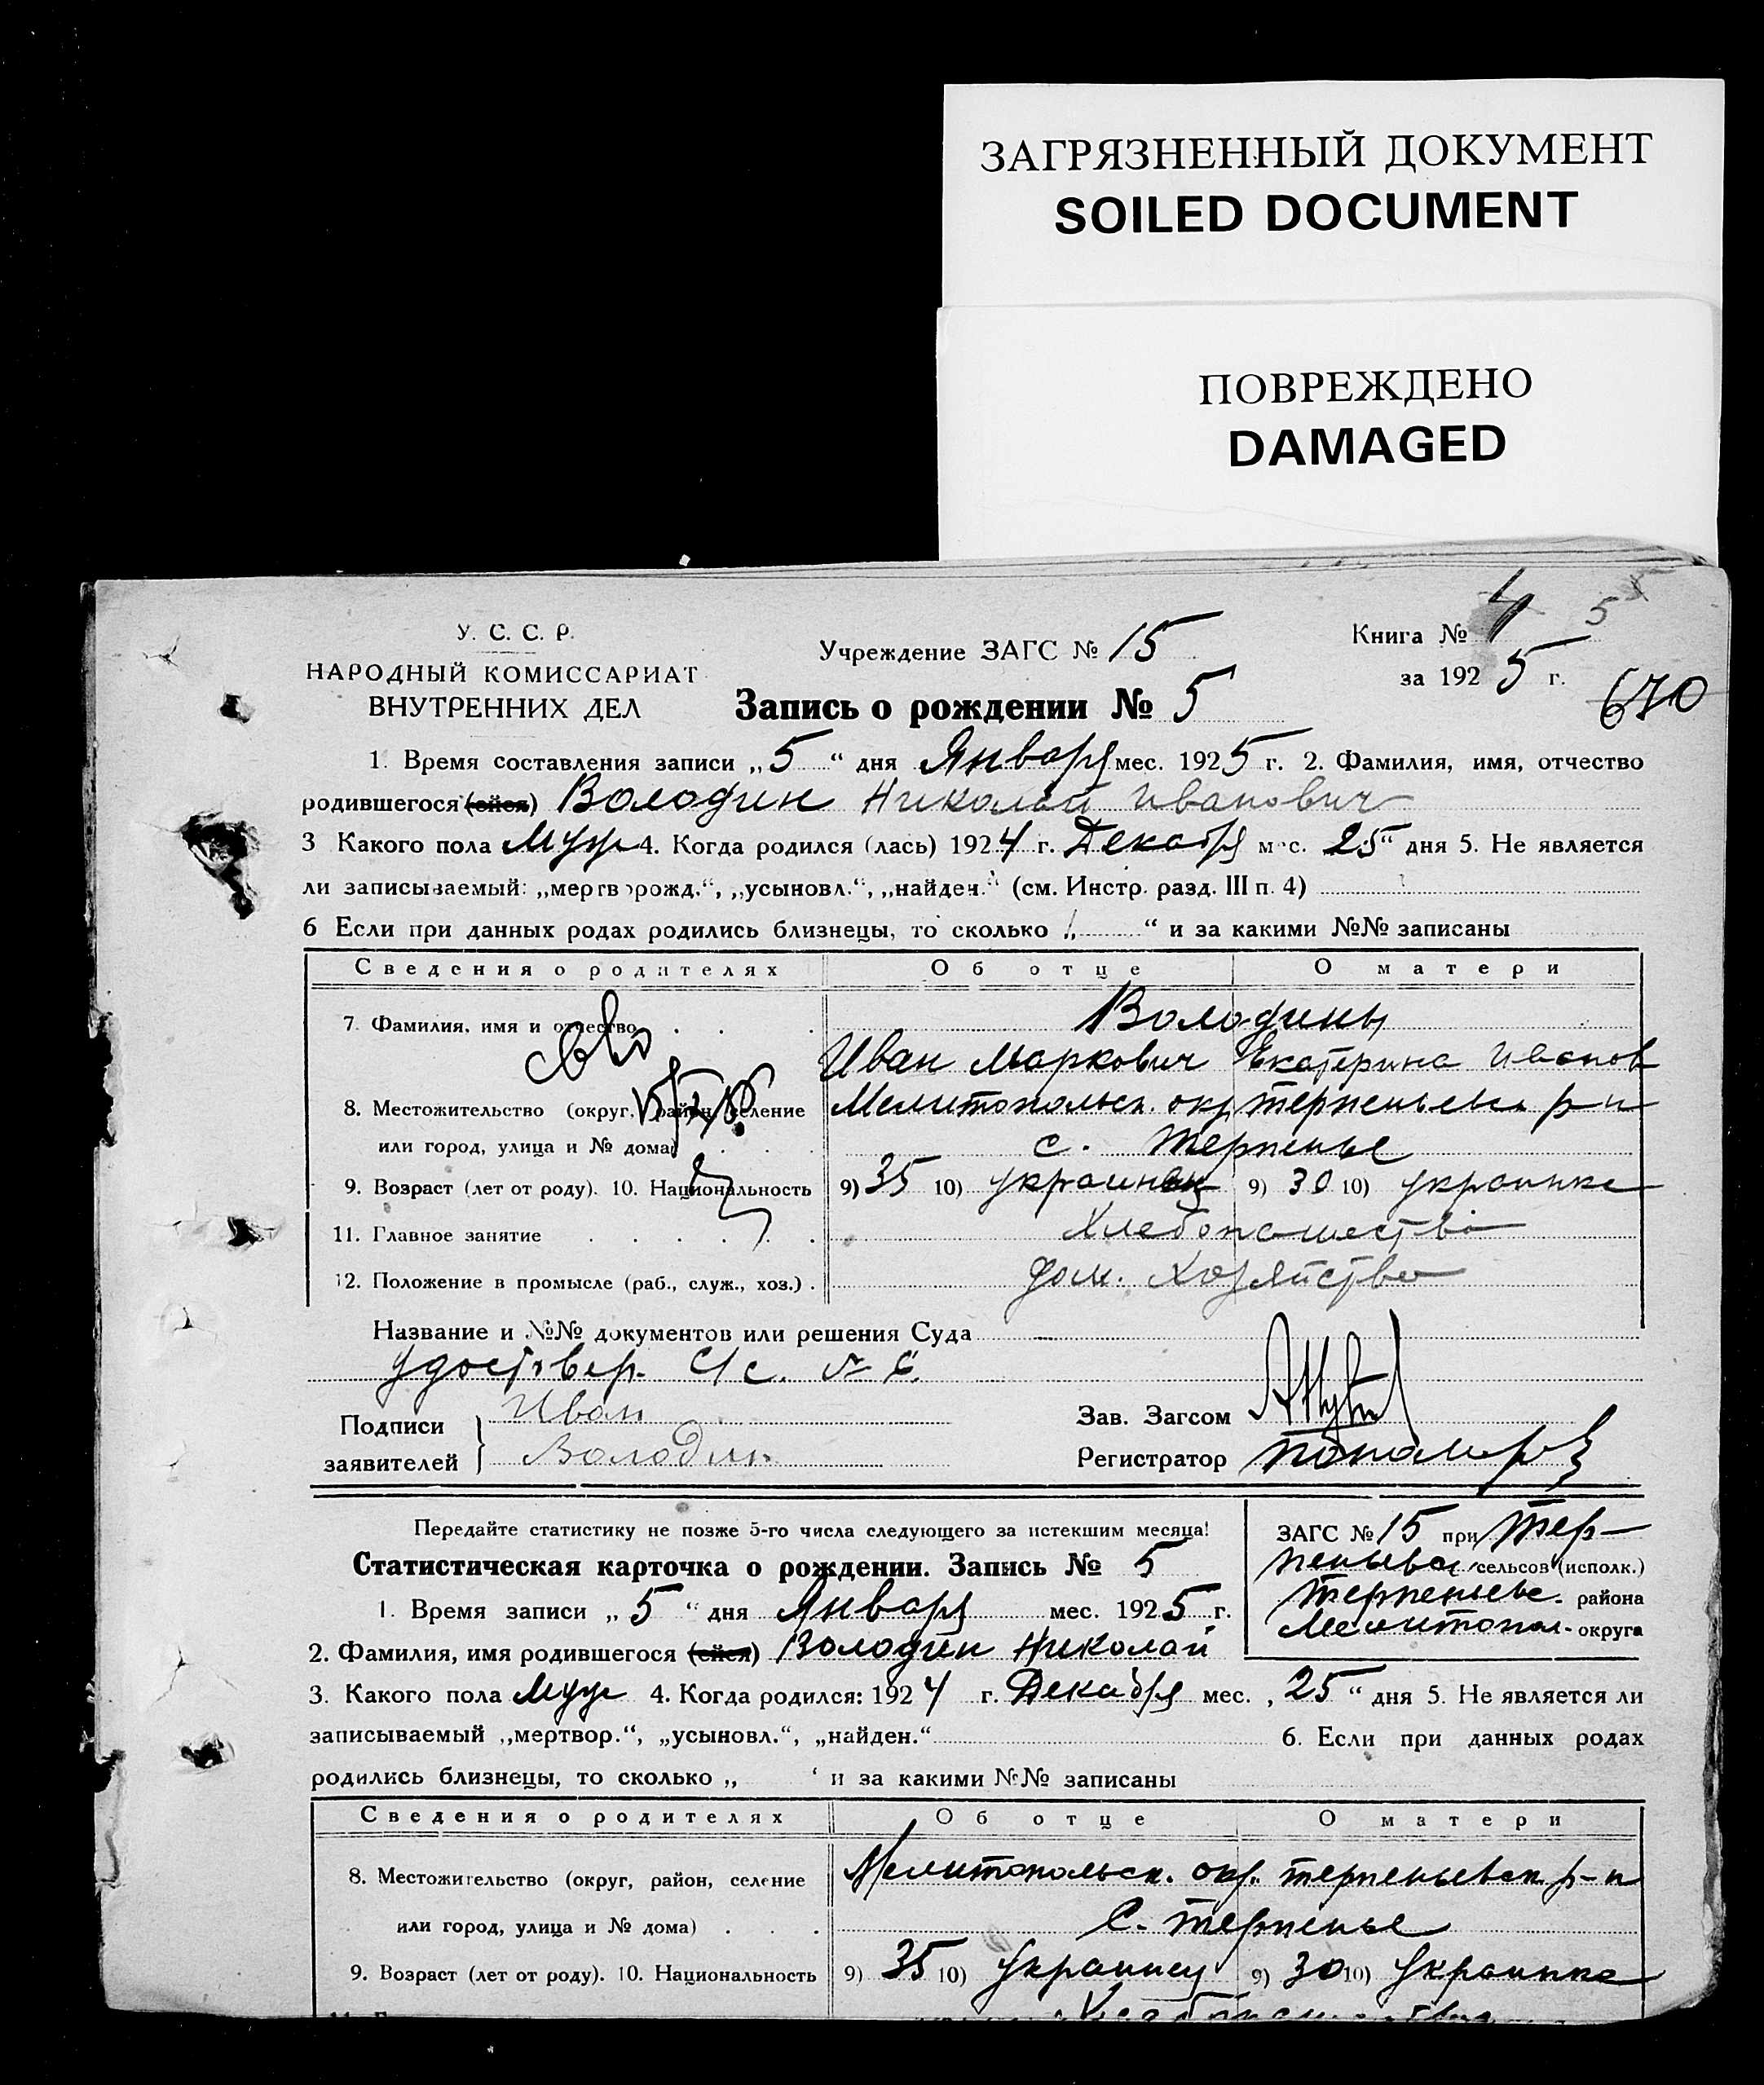 ЗАГРЯЗНЕННЫЙ ДОКУМЕНТ
SOILED DOCUMENT
ПОВРЕЖДЕНО
DAMAGED
5
У. С. С. Р.
НАРОДНЫЙ КОМИССАРИАТ
ВНУТРЕННИХ ДЕЛ
Учреждение ЗАГС № 15
Книга № 4
за 1925 г.
670
Запись о рождении № 5
1. Время составления записи „5“ дня Января мес. 1925 г. 2. Фамилия, имя, отчество
родившегося (ейся) Володин Николай Иванович
3 Какого пола Муж 4. Когда родился (лась) 1924 г. Декабря мес. 25“ дня 5. Не является
ли записываемый: „мертворожд.“, „усыновл.“, „найден.“ (см. Инстр. разд. III п. 4)
6 Если при данных родах родились близнецы, то сколько „ “ и за какими №№ записаны
Сведения о родителях Об отце О матери
7. Фамилия, имя и отчество Володины
Иван Маркович Екатерина Иванов
8. Местожительство (округ, район, селение Мелитопольск. окр. Терпеньевск. р-н
или город, улица и № дома) с. Терпенье
9. Возраст (лет от роду). 10. Национальность 9) 35 10) украинец 9) 30 10) украинка
11. Главное занятие Хлебопашество
12. Положение в промысле (раб., служ., хоз.) дом. Хозяйство
Название и №№ документов или решения Суда —
Удоствер. С/с. № 6.
Подписи заявителей Иван
Володин
Зав. Загсом
Регистратор
Передайте статистику не позже 5-го числа следующего за истекшим месяца!
Статистическая карточка о рождении. Запись № 5
ЗАГС № 15 при Тер-
пеньевск сельсов (исполк.)
Терпеньевс. района
Мелитопол- округа
1. Время записи „5“ дня Января мес. 1925 г.
2. Фамилия, имя родившегося (ейся) Володин Николай
3. Какого пола Муж 4. Когда родился: 1924 г. Декабря мес. „25“ дня 5. Не является ли
записываемый „мертвор.“, „усыновл.“, „найден.“ 6. Если при данных родах
родились близнецы, то сколько „ “ и за какими №№ записаны
Сведения о родителях Об отце О матери
8. Местожительство (округ, район, селение Мелитопольск. окр. Терпеньевск. р-н
или город, улица и № дома) С. Терпенье
9. Возраст (лет от роду). 10. Национальность 9) 35 10) Украинец 9) 30 10) Украинка